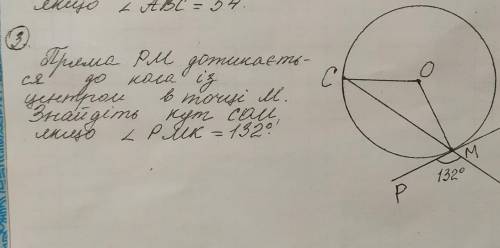 якщо ∠ ABC = 54.
3.
Пряма PM дотикаєть-
ся до кола із
центром в точці M.
Знайдіть кут COM,
якщо ∠ PMK = 132°.
C
O
M
P
132°